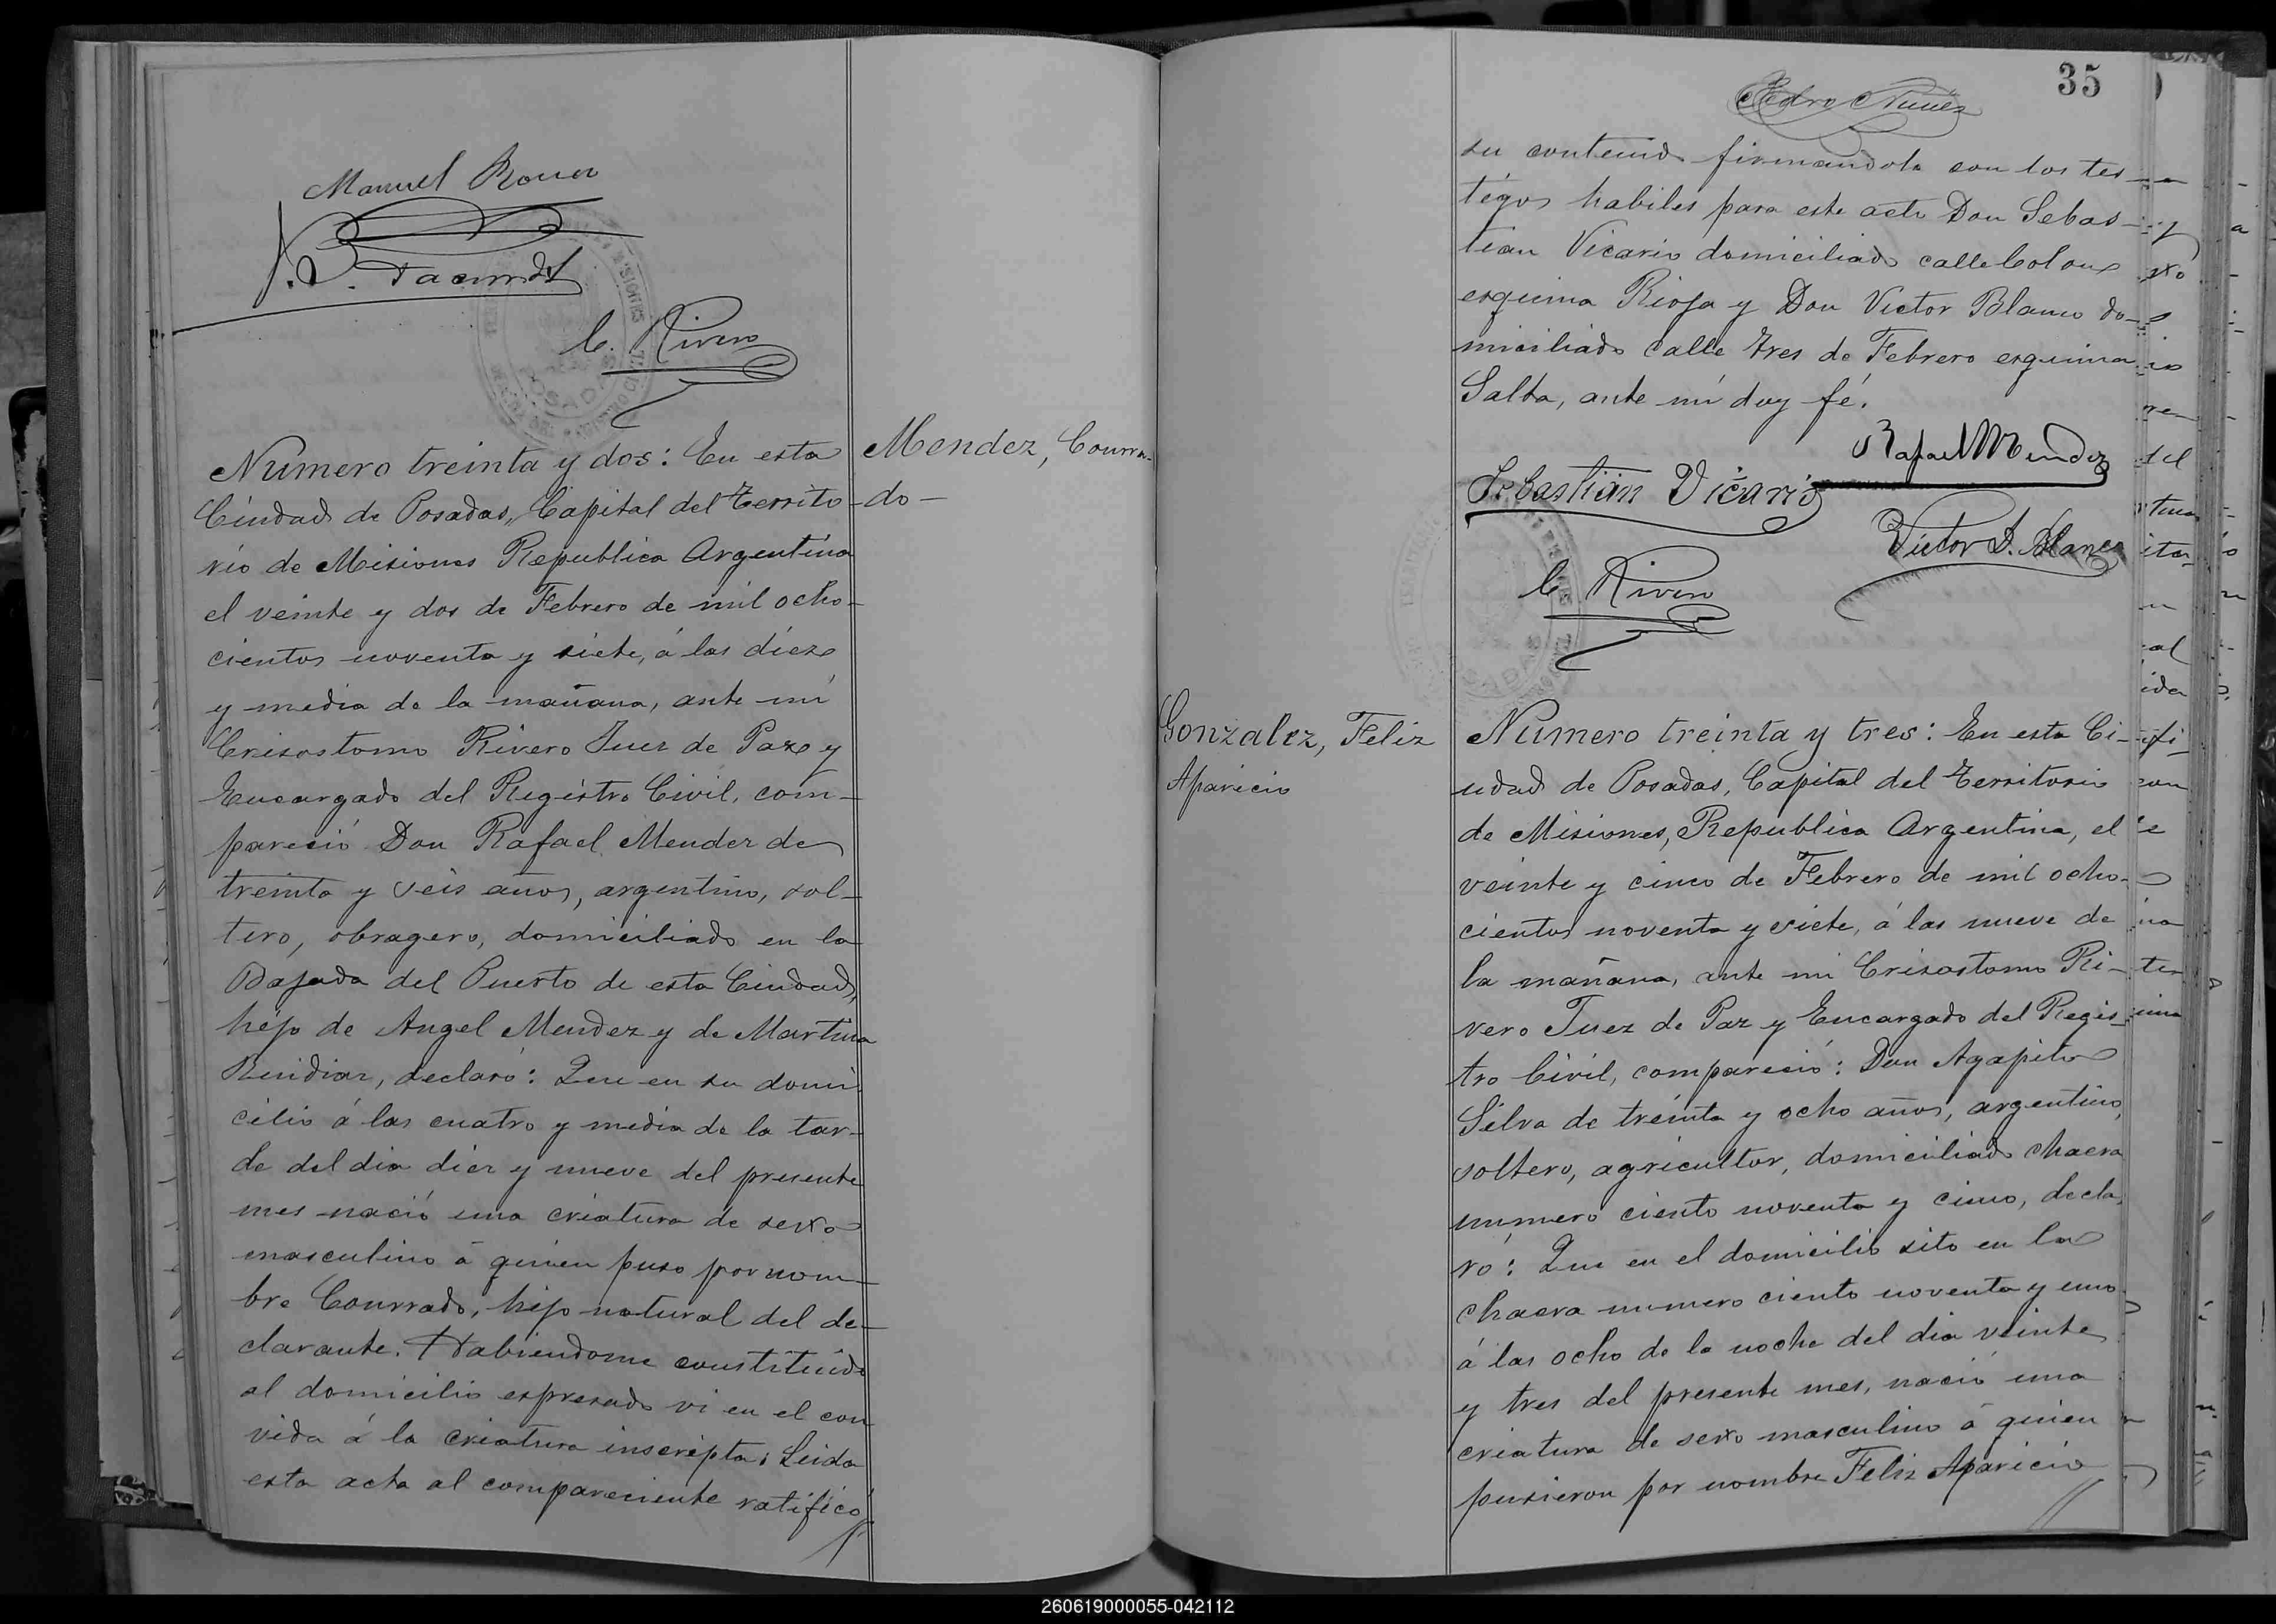 Manuel
C. Rivero
POSADAS
Numero treinta y dos: En esta
Ciudad de Posadas, Capital del Territo-
rio de Misiones Republica Argentina
el veinte y dos de Febrero de mil ocho-
cientos noventa y siete, á las diez
y media de la mañana, ante mí
Crisostomo Rivero Juez de Paz y
Encargado del Registro Civil, com-
pareció Don Rafael Mendez de
treinta y seis años, argentino, sol-
tero, obragero, domiciliado en la
Bajada del Puerto de esta Ciudad,
hijo de Angel Mendez y de Martina
declaró: Que en su domi-
cilio á las cuatro y media de la tar-
de del dia diez y nueve del presente
mes nació una criatura de sexo
masculino á quien puso por nom-
bre Conrrado, hijo natural del de-
clarante. Habiendome constituido
al domicilio espresado vi en el con
vida á la criatura inscripta. Leida
esta acta al compareciente ratificó
Mendez, Conrra-
do-
35
Pedro Nuñez
su contenido firmandola con los tes-
tigos habiles para este acto Don Sebas-
tian Vicario domiciliado calle Colon
esquina Rioja y Don Victor Blanco do-
miciliado calle Tres de Febrero esquina
Salta, ante mí doy fé.
Rafael Mendez
Sebastian Vicario
Victor J. Blanco
C. Rivero
Gonzalez, Feliz
Aparicio
Numero treinta y tres: En esta Ci-
udad de Posadas, Capital del Territorio
de Misiones, Republica Argentina, el
veinte y cinco de Febrero de mil ocho-
cientos noventa y siete, á las nueve de
la mañana, ante mi Crisostomo Ri-
vero Juez de Paz y Encargado del Regis-
tro Civil, compareció: Don Agapito
Silva de treinta y ocho años, argentino,
soltero, agricultor, domiciliado chacra
numero ciento noventa y cinco, decla-
ró: Que en el domicilio sito en la
chacra numero ciento noventa y uno
á las ocho de la noche del dia veinte
y tres del presente mes, nació una
criatura de sexo masculino á quien
pusieron por nombre Feliz Aparicio
260619000055-042112